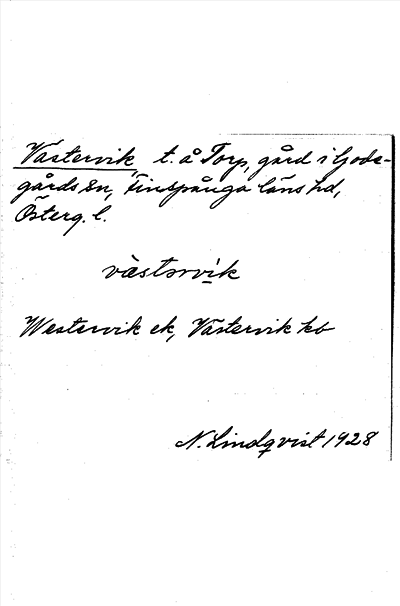 Västervik, t. å Torp, gård i Gods-
gårds sn, Finspånga läns hd,
Österg. l.
västərvik
Westervik ek, Västervik kb
N. Lindqvist 1928